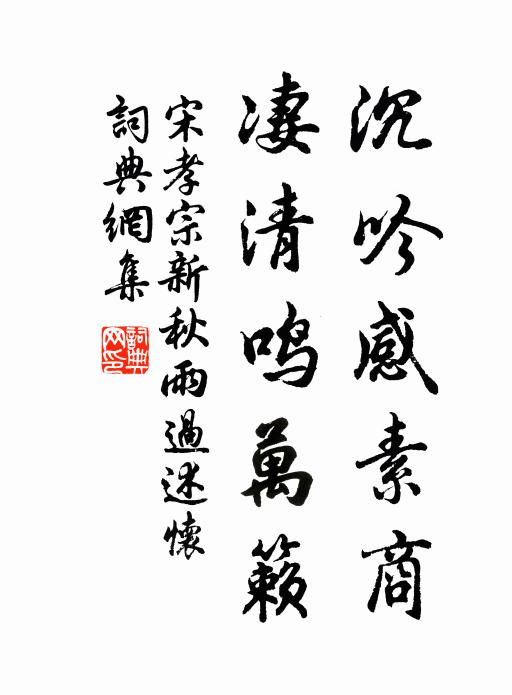 沉吟感素商
凄清鸣萬籟
宋孝宗新秋雨過述懷
詞典網集
詞典网印